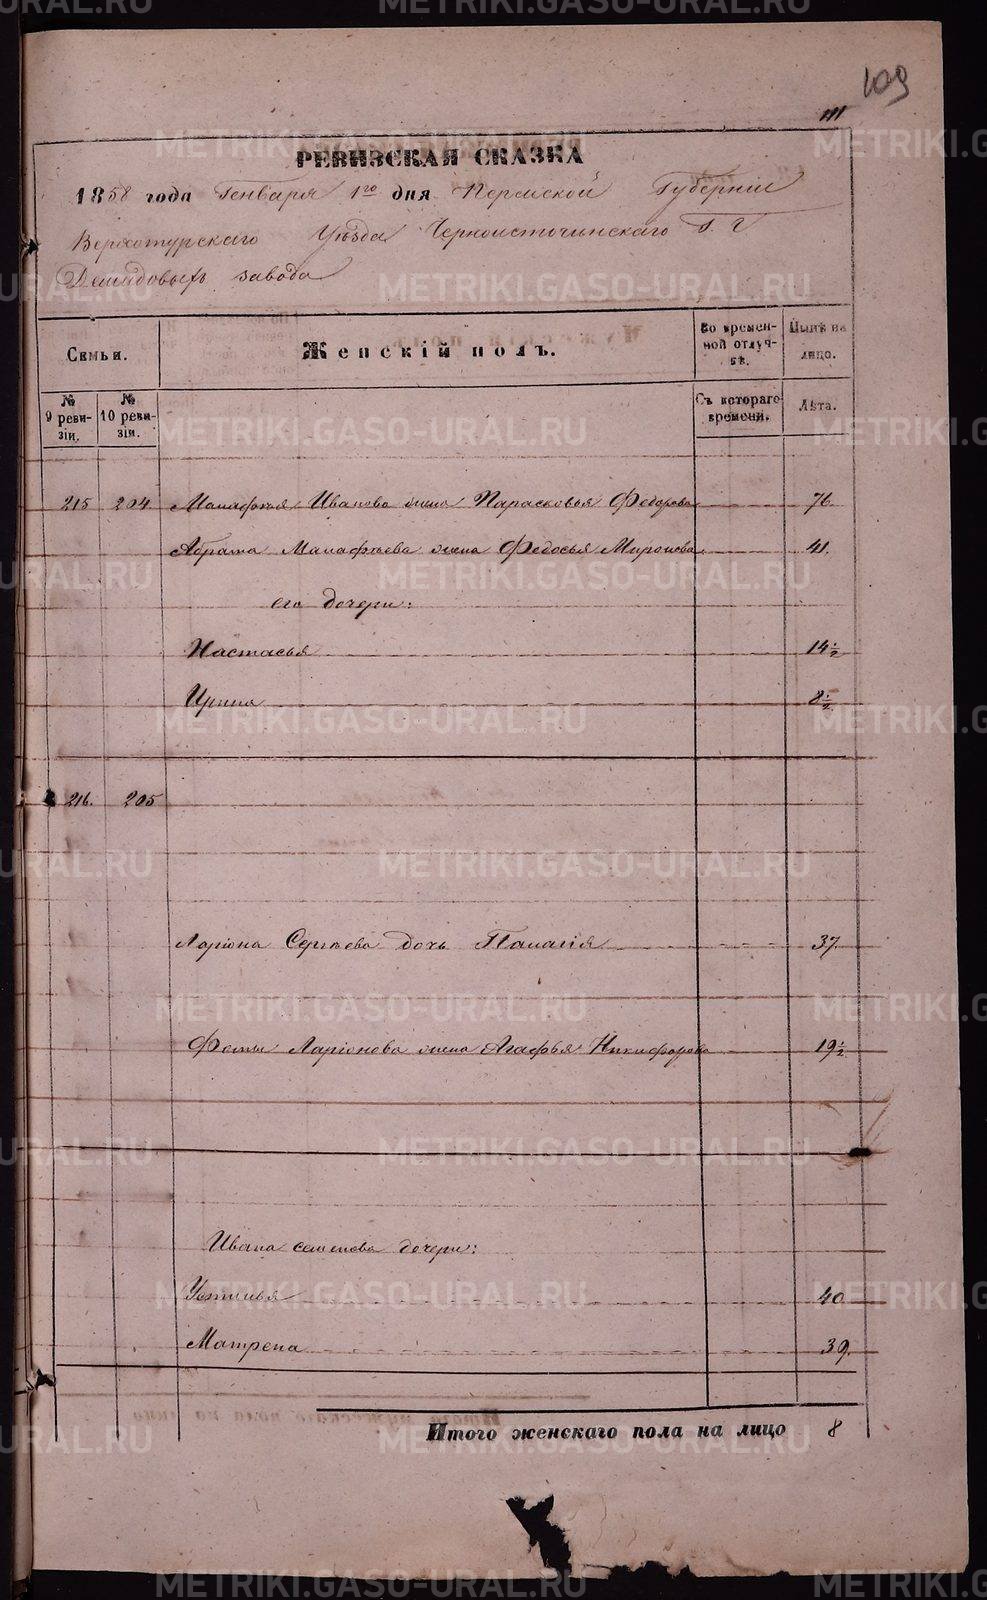 109
111
РЕВИЗСКАЯ СКАЗКА
1858 года Генваря 1го дня Пермской Губернiи
Верхотурскаго Уѣзда Черноисточинскаго Г. Г.
Демидовыхъ завода
Семьи.
Женскiй полъ.
Во времен-
ной отлуч-
кѣ.
Нынѣ на
лицо.
№
9 реви-
зiи.
№
10 реви-
зiи.
Съ котораго
времени.
Лѣта.
215 204 Манафѣья Иванова жена Парасковья Федорова 76.
Абрама Манафѣева жена Федосья Миронова 41.
его дочери:
Настасья 14½
Ирина 8½
216. 205
Ларiона Сергѣева дочь Палагiя 37.
Фомы Ларiонова жена Агафья Никифорова 19½
Ивана Семенова дочери:
Устинья 40
Матрена 39.
Итого женскаго пола на лицо 8
METRIKI.GASO-URAL.RU